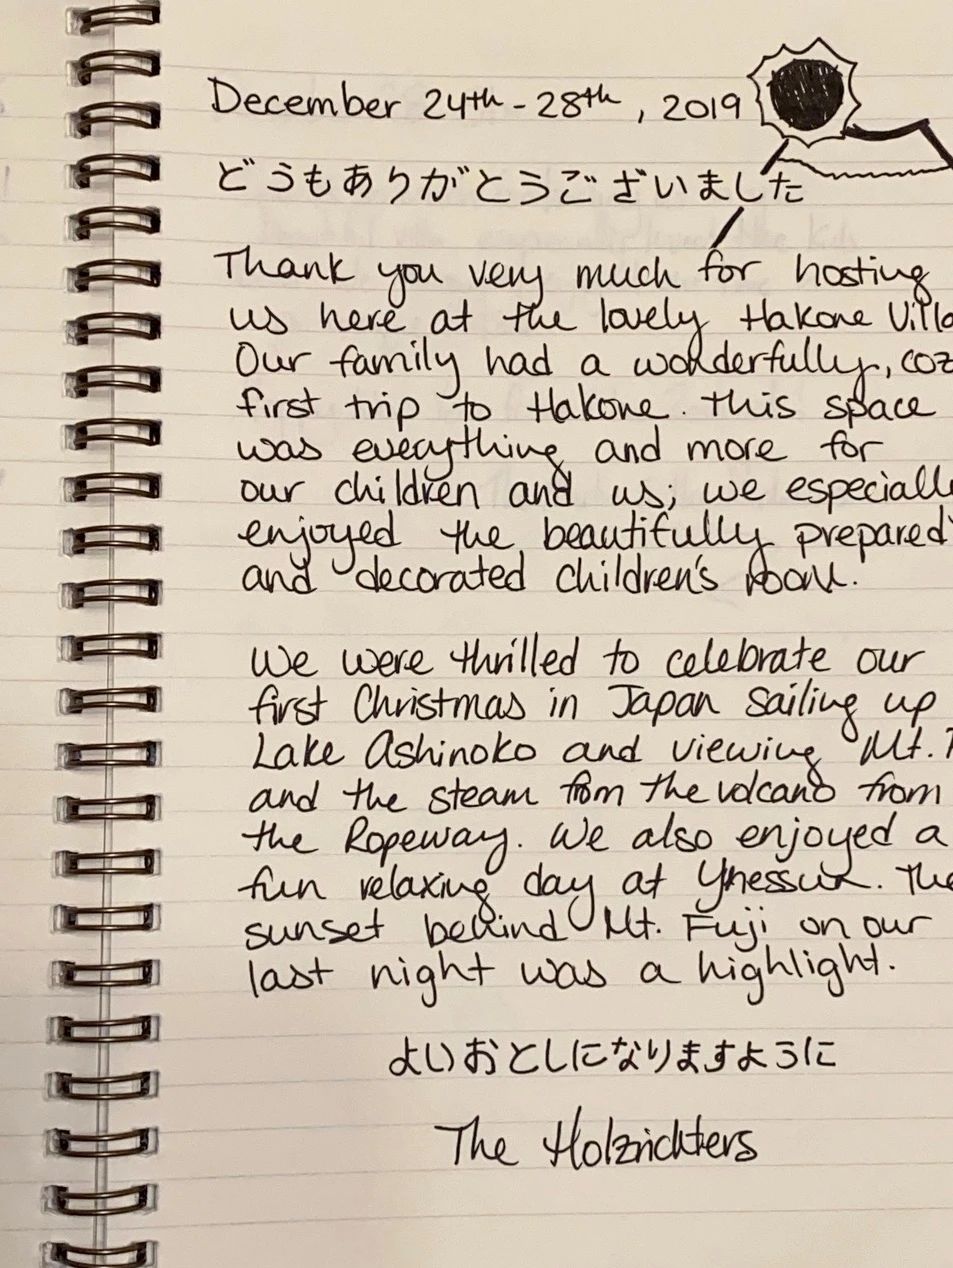 December 24th - 28th, 2019
どうもありがとうございました
Thank you very much for hosting
us here at the lovely Hakone Villa
Our family had a wonderfully, coz
first trip to Hakone. This space
was everything and more for
our children and us; we especiall
enjoyed the beautifully prepared
and decorated children's room.
We were thrilled to celebrate our
first Christmas in Japan sailing up
Lake Ashinoko and viewing Mt.
and the steam from the volcano from
the Ropeway. We also enjoyed a
fun relaxing day at Ynessun. The
sunset behind Mt. Fuji on our
last night was a highlight.
よいおとしになりますように
The Holzrichters